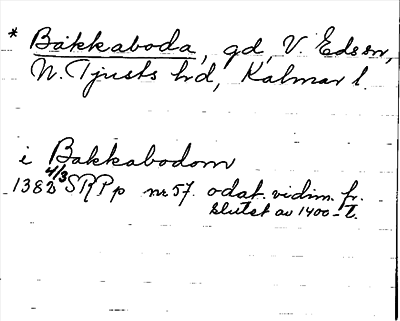 * Bäkkaboda, gd, V. Eds sn,
N. Tjusts hd, Kalmar l.
i Bakkabodom
1382 4/3 SRPp nr 57. odat. vidim. fr.
slutet av 1400-t.